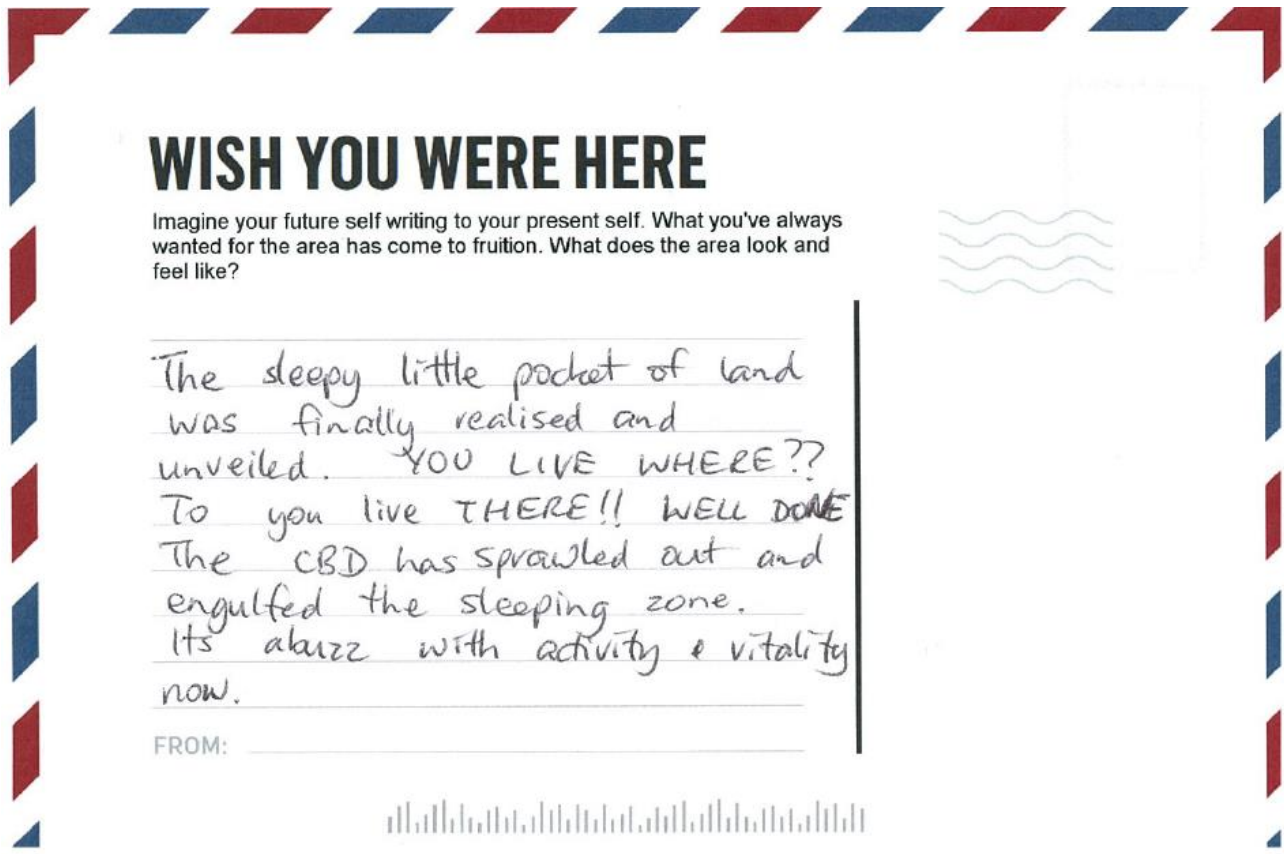 WISH YOU WERE HERE
Imagine your future self writing to your present self. What you've always
wanted for the area has come to fruition. What does the area look and
feel like?
The sleepy little pocket of land
was finally realised and
unveiled. YOU LIVE WHERE??
To you live THERE!! WELL DONE
The CBD has sprawled out and
engulfed the sleeping zone.
Its abuzz with activity & vitality
now.
FROM: